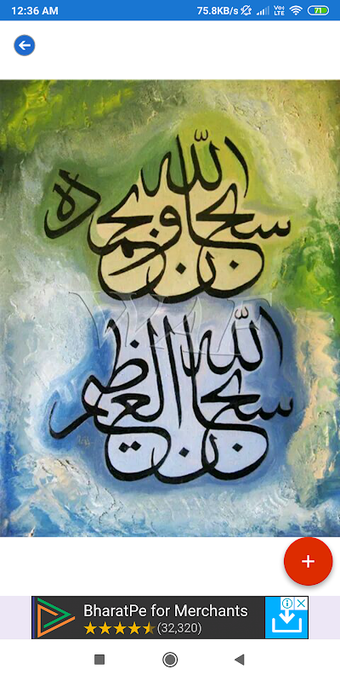 12:36 AM
75.8KB/s
VoLTE
71
سبحان الله وبحمده
سبحان الله العظيم
BharatPe for Merchants
(32,320)